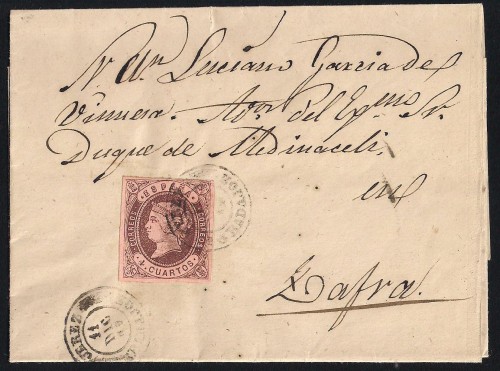 Sr. Dn. Luciano Garcia de
Admor. del Exmo. Sr.
Duque de Medinaceli.
en
Zafra.
ESPAÑA
CORREOS
CORREOS
4 CUARTOS
BADAJOZ
JEREZ
11
DIC